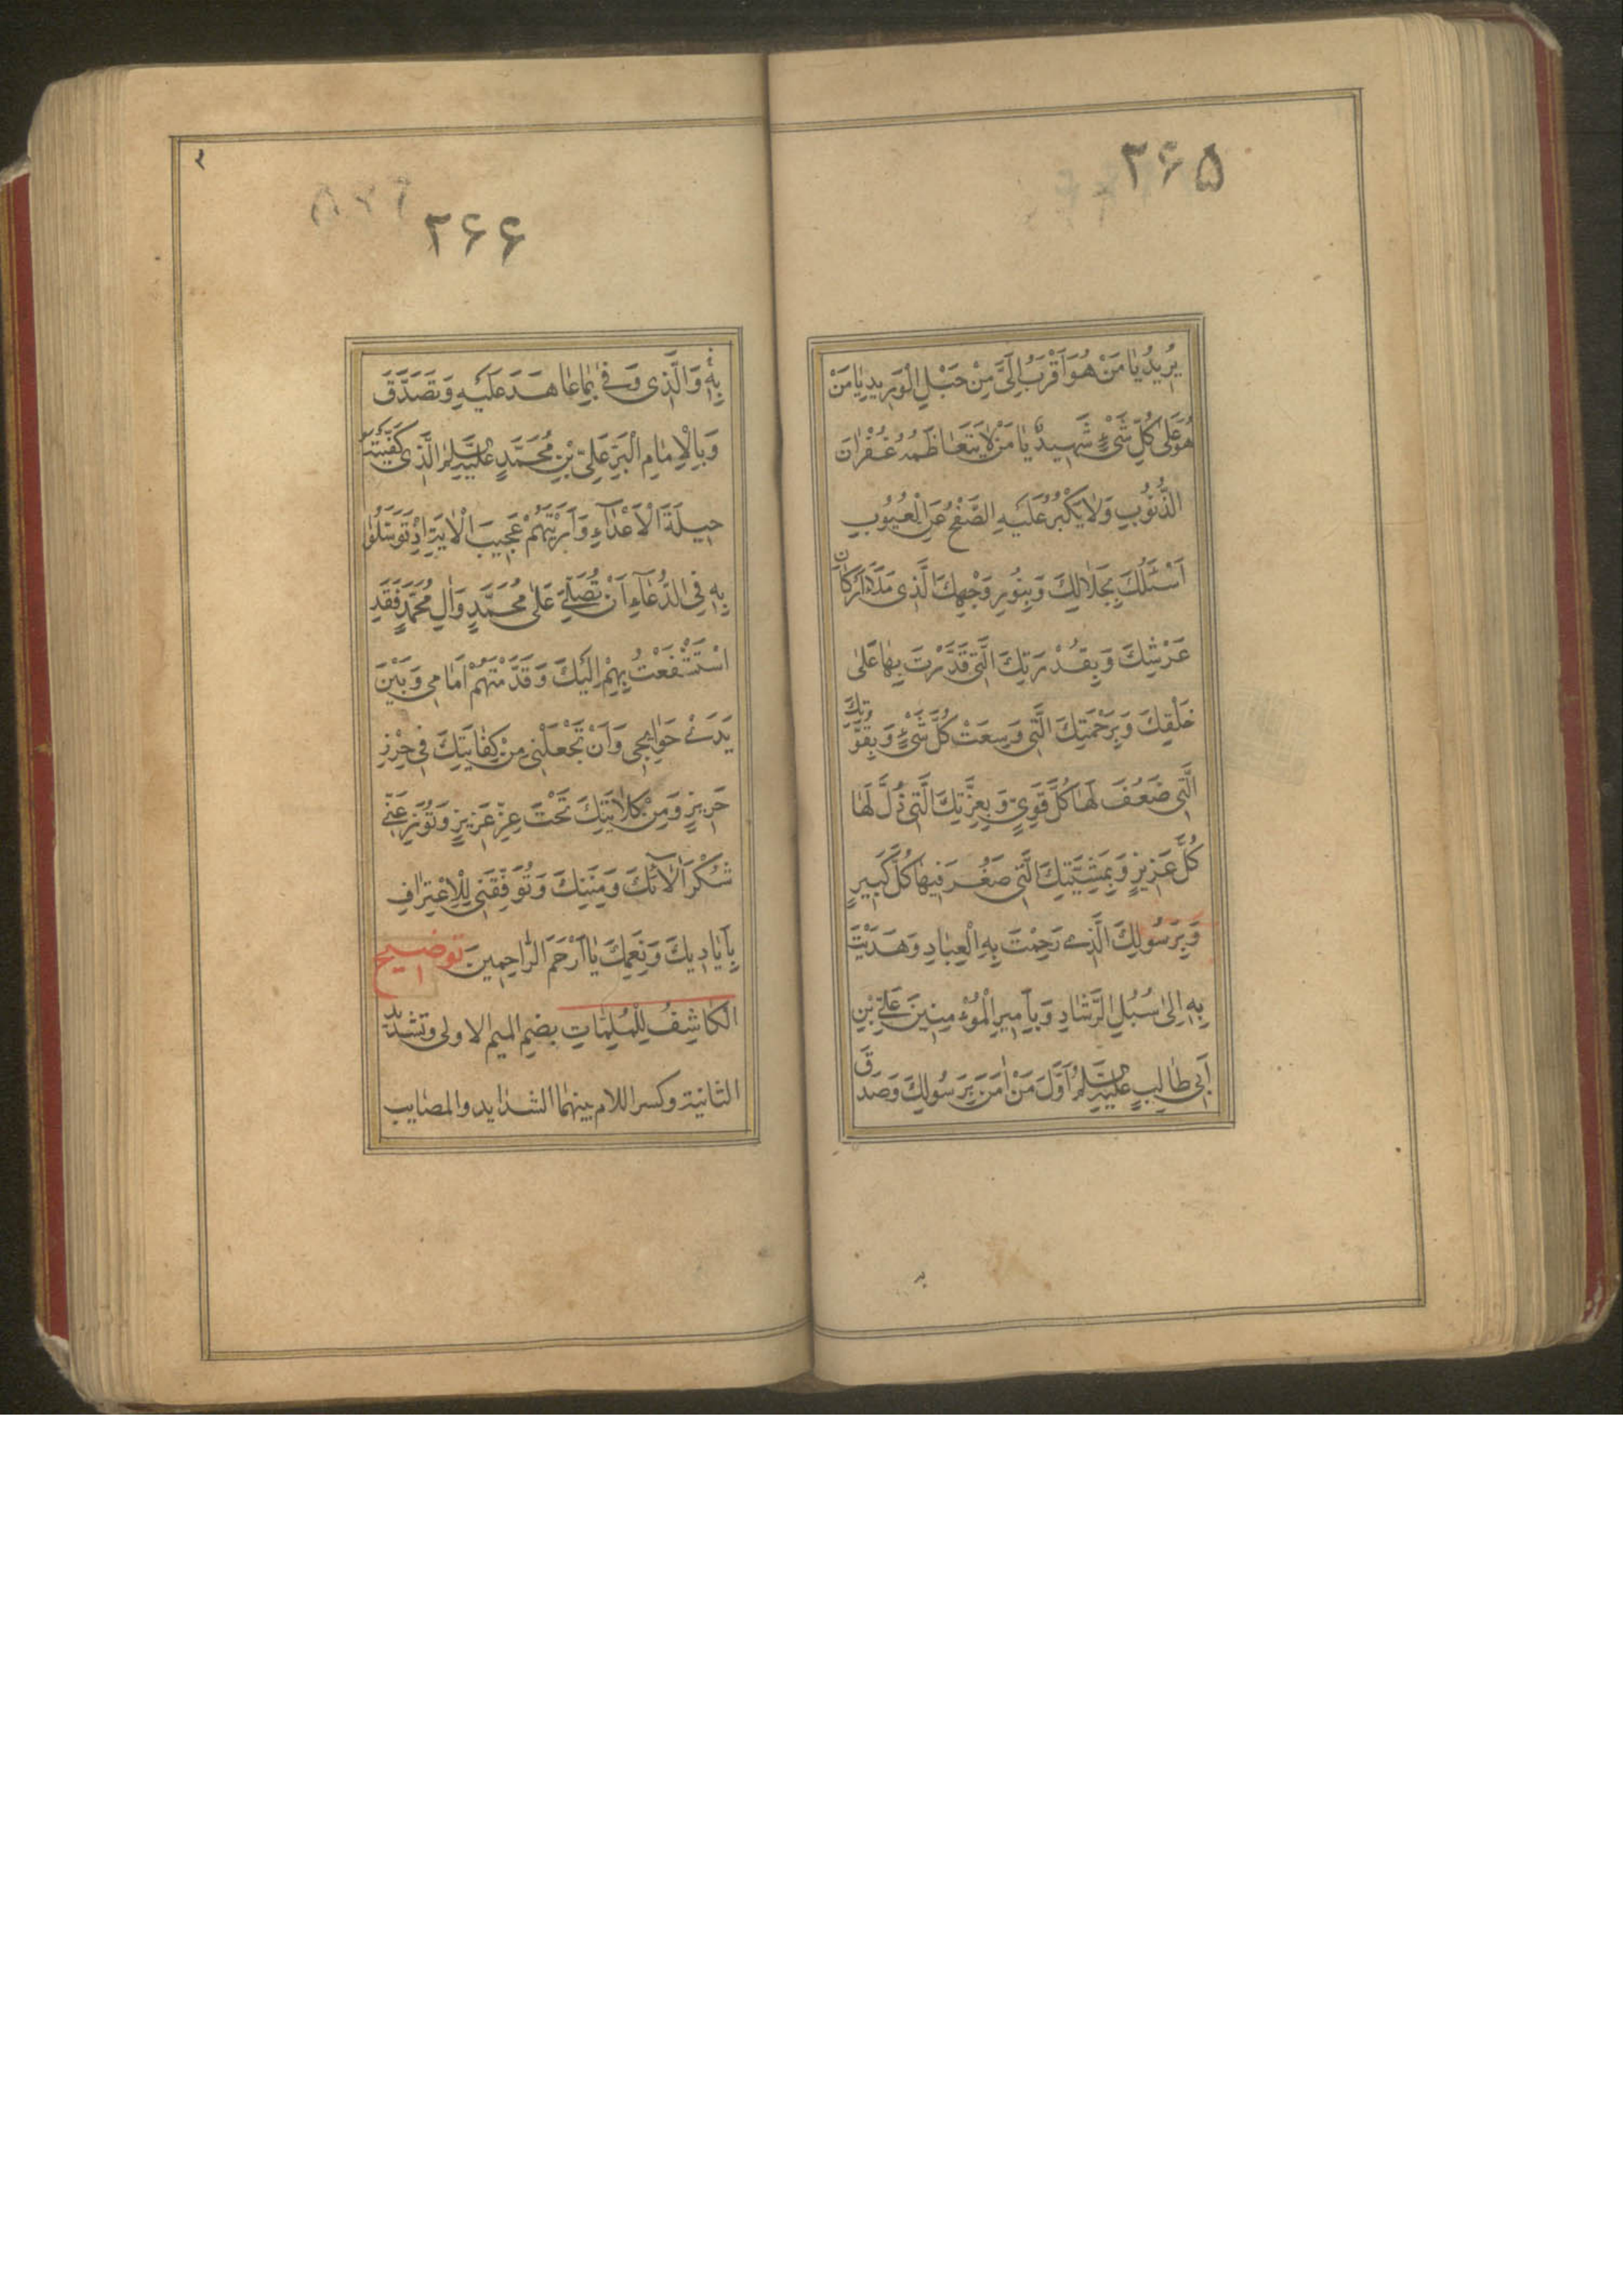 ۳۶۵
يُرِيدُ يٰا مَنْ هُوَ اَقْرَبُ اِلَىَّ مِنْ حَبْلِ الْوَرِيدِ يٰا مَنْ
هُوَ عَلىٰ كُلِّ شَيْءٍ شَهِيدٌ يٰا مَنْ لٰا يَتَعٰاظَمُهُ غُفْرٰانَ
الذُّنُوبِ وَلٰا يَكْبُرُ عَلَيْهِ الصَّفْحُ عَنِ الْعُيُوبِ
اَسْئَلُكَ بِجَلٰالِكَ وَبِنُورِ وَجْهِكَ الَّذِى مَلَاَ اَرْكٰانَ
عَرْشِكَ وَبِقُدْرَتِكَ الَّتِى قَدَّرْتَ بِهٰا عَلىٰ
خَلْقِكَ وَبِرَحْمَتِكَ الَّتِى وَسِعَتْ كُلَّ شَيْءٍ وَبِقُوَّتِكَ
الَّتِى ضَعُفَ لَهٰا كُلُّ قَوِيٍّ وَبِعِزَّتِكَ الَّتِى ذُلَّ لَهٰا
كُلُّ عَزِيزٍ وَبِمَشِيَّتِكَ الَّتِى صَغُرَ فِيهٰا كُلُّ كَبِيرٍ
وَبِرَسُولِكَ الَّذِى رَحِمْتَ بِهِ الْعِبٰادِ وَهَدَيْتَ
بِهِ اِلىٰ سُبُلِ الرَّشٰادِ وَبِاَمِيرِ الْمُؤْمِنِينَ عَلِىِّ بْنِ
اَبِى طٰالِبٍ عَلَيْهِ السَّلٰمُ اَوَّلَ مَنْ اٰمَنَ بِرَسُولِكَ وَصَدَّقَ
۳۶۶
بِهِ وَالَّذِى وَفىٰ بِمٰا عٰاهَدَ عَلَيْهِ وَتَصَدَّقَ
وَبِالْاِمٰامِ الْبَرِّ عَلِىِّ بْنِ مُحَمَّدٍ عَلَيْهِ السَّلٰمُ الَّذِى كَفَيْتَهُ
حِيلَةَ الْاَعْدٰآءِ وَاَرَيْتَهُمْ عَجِيبَ الْاٰيَةِ اِذْ تَوَسَّلُوا
بِهِ فِى الدُّعٰآءِ اَنْ تُصَلِّىَ عَلىٰ مُحَمَّدٍ وَاٰلِ مُحَمَّدٍ فَقَدِ
اسْتَشْفَعْتُ بِهِمْ اِلَيْكَ وَقَدَّمْتُهُمْ اَمٰامِى وَبَيْنَ
يَدَىْ حَوٰائِجِى وَاَنْ تَجْعَلَنِى مِنْ كِفٰايَتِكَ فِى حِرْزٍ
حَرِيزٍ وَمِنْ كِلٰايَتِكَ تَحْتَ عِزٍّ عَزِيزٍ وَتُوزِعَنِى
شُكْرَ اٰلٰآئِكَ وَمِنَنِكَ وَتُوَفِّقَنِى لِلْاِعْتِرٰافِ
بِاَيٰادِيكَ وَنِعَمِكَ يٰا اَرْحَمَ الرّٰاحِمِينَ توضيح
الْكٰاشِفُ لِلْمُلِمّٰاتِ بضم الميم الاولى وتشديد
الثانية وكسر اللام بينهما الشدايد والمصايب